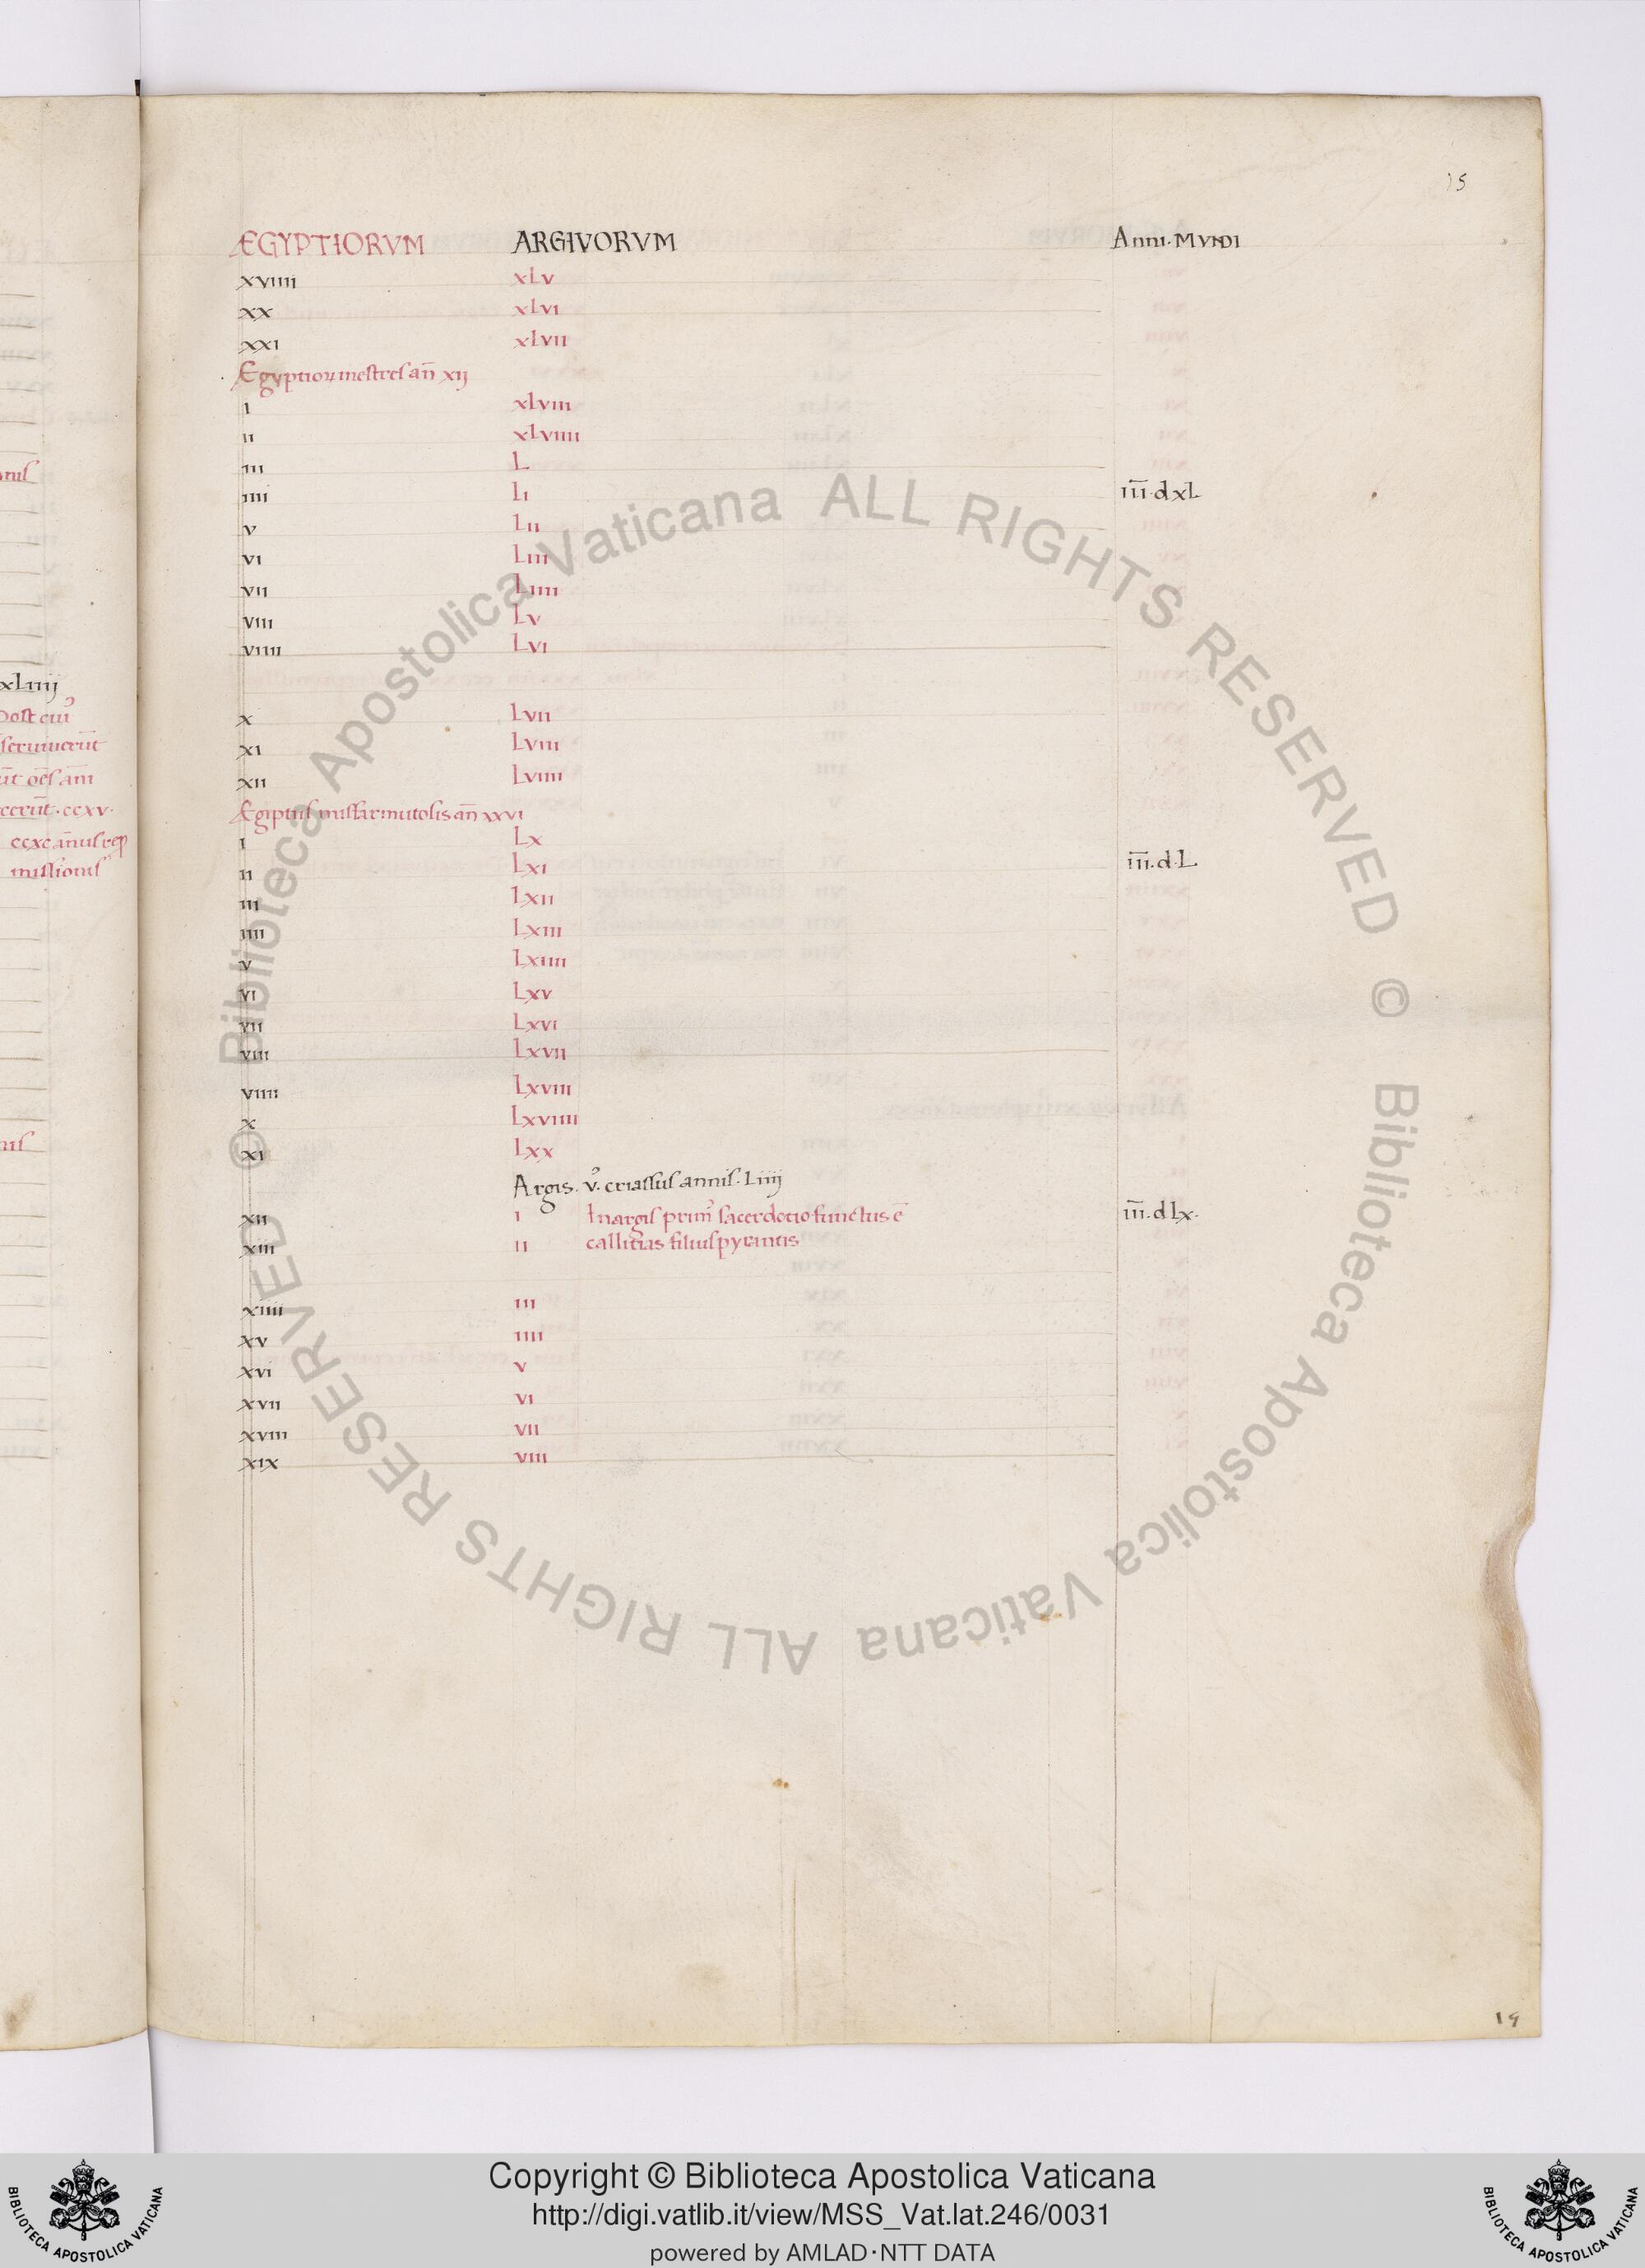 15
ÆGYPTIORVM ARGIVORVM Anni·MVNDI
xviiii xLv
xx xLvi
xxi xLvii
Ægyptioꝝ mestres an̄ xij
i xLviii
ii xLviiii
iii L
iiii Li iii̅·dxL
v Lii
vi Liii
vii Liiii
viii Lv
viiii Lvi
x Lvii
xi Lviii
xii Lviiii
Ægiptiis misfarmutosis an̄ xxvi
i Lx
ii Lxi iii̅.d·L
iii Lxii
iiii Lxiii
v Lxiiii
vi Lxv
vii Lxvi
viii Lxvii
viiii Lxviii
x Lxviiii
xi Lxx
Argis. v̉. criassus annis·Liiij
xii i Inargis prim᾽ sacerdotio functus ē iii̅.dLx.
xiii ii callitias filius pyrantis
xiiii iii
xv iiii
xvi v
xvii vi
xviii vii
xix viii
xLiiij
post eiu᾽
seruierūt
ūt oēs am̄
ccxv·
missionis
19
© Biblioteca Apostolica Vaticana ALL RIGHTS RESERVED © Biblioteca Apostolica Vaticana ALL RIGHTS RESERVED
BIBLIOTECA APOSTOLICA VATICANA
Copyright © Biblioteca Apostolica Vaticana
http://digi.vatlib.it/view/MSS_Vat.lat.246/0031
powered by AMLAD·NTT DATA
BIBLIOTECA APOSTOLICA VATICANA